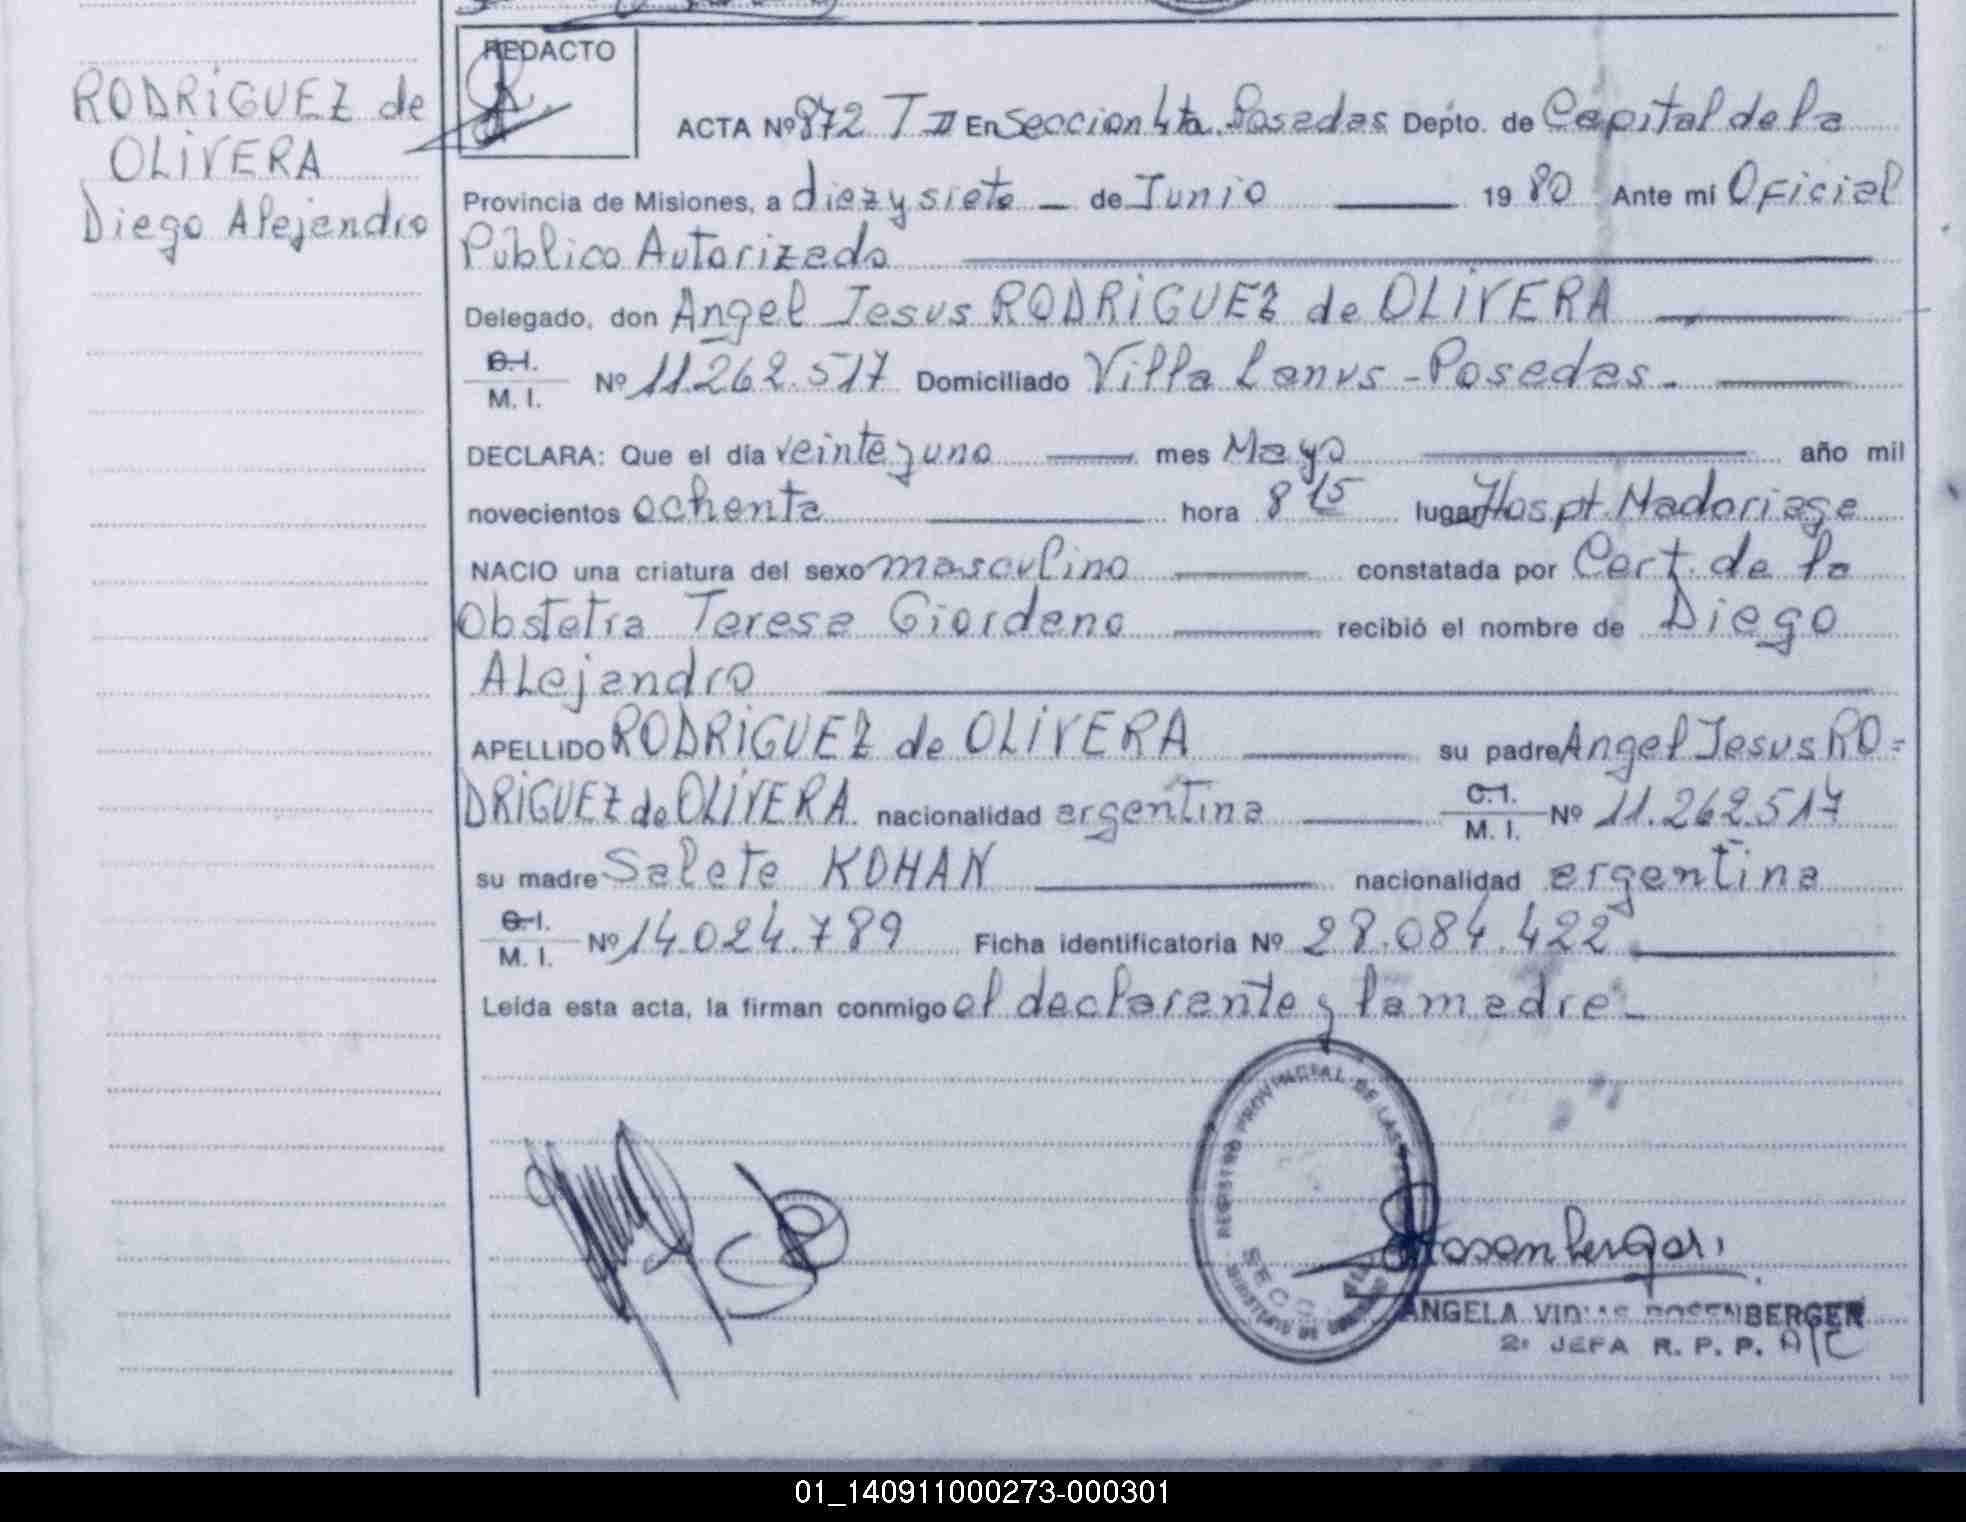 REDACTO
RODRIGUEZ de
OLIVERA
Diego Alejandro
ACTA Nº 872 T II En Seccion 4ta. Posadas Depto. de Capital de la
Provincia de Misiones, a diez y siete — de Junio — 19 80 Ante mi Oficial
Público Autorizado
Delegado, don Angel Jesus RODRIGUEZ de OLIVERA
C.I.
M. I. Nº 11.262.517 Domiciliado Villa Lanus - Posadas.
DECLARA: Que el día veinte y uno — mes Mayo — año mil
novecientos ochenta — hora 8 15 lugar Hospt. Madariaga
NACIO una criatura del sexo masculino — constatada por Cert. de la
Obstetra Teresa Giordano — recibió el nombre de Diego
Alejandro
APELLIDO RODRIGUEZ de OLIVERA — su padre Angel Jesus RO=
DRIGUEZ de OLIVERA nacionalidad argentina — C.I. M. I. Nº 11.262.517
su madre Salete KOHAN — nacionalidad argentina
C.I.
M. I. Nº 14.024.789 Ficha identificatoria Nº 28.084.422
Leída esta acta, la firman conmigo el declarante y la madre.-
REGISTRO PROVINCIAL DE LAS
SECC
MINISTERIO DE GOBIERNO
Rosenberger
ANGELA VIDAS ROSENBERGER
2ª JEFA R. P. P. A/C
01_140911000273-000301